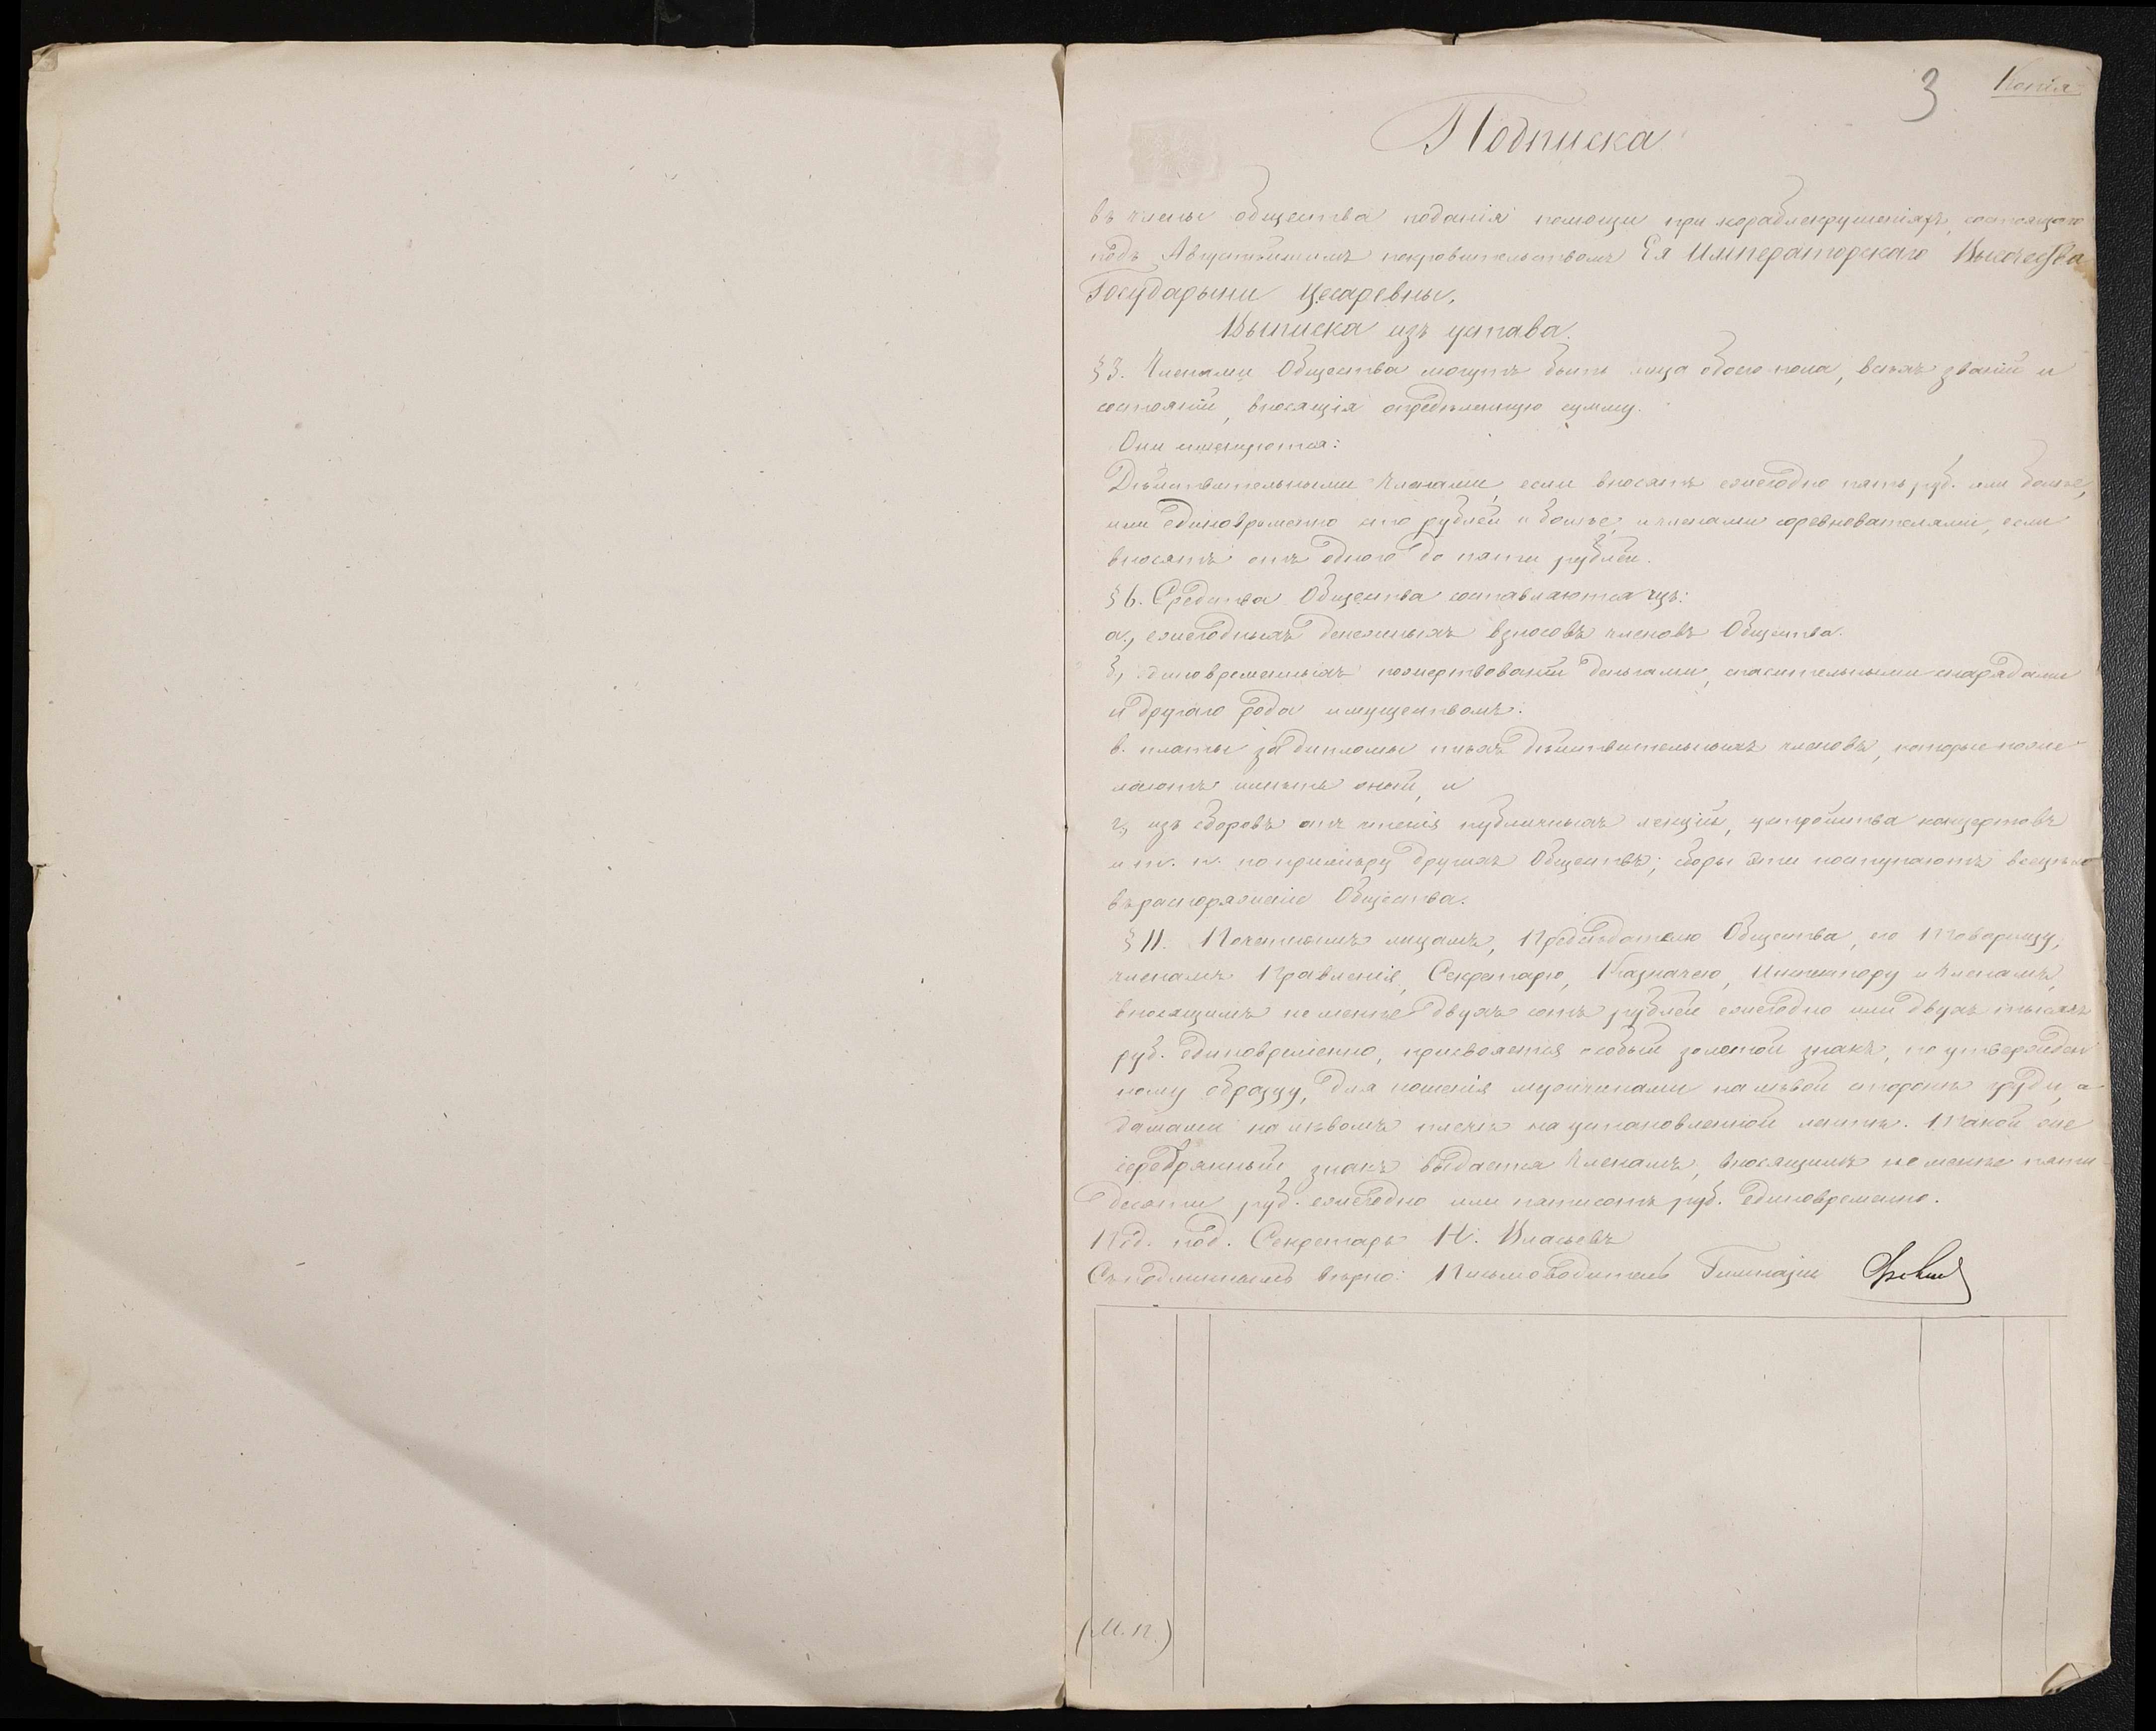 3 Копія
Подписка
въ члены общества поданія помощи при кораблекрушеніяхъ, состоящаго
подъ Августѣйшимъ покровительствомъ Ея Императорскаго Высочества
Государыни Цесаревны.
Выписка изъ устава.
§ 3. Членами Общества могутъ быть лица обоего пола, всѣхъ званій и
состояній, вносящія опредѣленную сумму.
Они именуются:
Дѣйствительными членами, если вносятъ ежегодно пять руб. или болѣе,
или единовременно сто рублей и болѣе, и членами соревнователями, если
вносятъ отъ одного до пяти рублей.
§ 6. Средства Общества составляются изъ:
а., ежегодныхъ денежныхъ взносовъ членовъ Общества.
б., единовременныхъ пожертвованій деньгами, спасительными снарядами
и другаго рода имуществомъ.
в. платы за дипломы тѣхъ дѣйствительныхъ членовъ, которые поже
лаютъ имѣть оный, и
г., изъ сборовъ отъ чтенія публичныхъ лекцій, устройства концертовъ
и т. п. по примѣру другихъ Обществъ; сборы эти поступаютъ всецѣло
въ распоряженіе Общества.
§ 11. Почетнымъ лицамъ, Предсѣдателю Общества, его Товарищу,
членамъ Правленія, Секретарю, Казначею, Инспектору и Членамъ,
вносящимъ не менѣе двухъ сотъ рублей ежегодно или двухъ тысячъ
руб. единовременно, присвояется особый золотой знакъ, по утвержден
ному образцу, для ношенія мужчинами на лѣвой сторонѣ груди, а
дамами на лѣвомъ плечѣ на установленной лентѣ. Такой же
серебрянный знакъ выдается Членамъ, вносящимъ не менѣе пяти
десяти руб. ежегодно или пятисотъ руб. единовременно.
Под. под. Секретарь Н. Власьевъ
Съ подлиннымъ вѣрно: Письмоводитель Гимназіи
(М. П.)